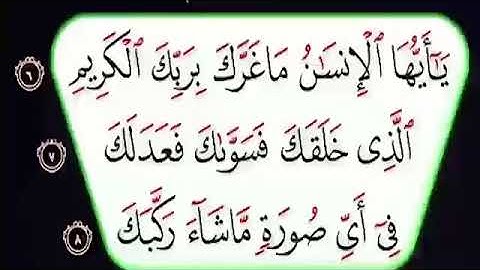 يَـٰٓأَيُّهَا ٱلْإِنسَـٰنُ مَا غَرَّكَ بِرَبِّكَ ٱلْكَرِيمِ ٦
ٱلَّذِى خَلَقَكَ فَسَوَّىٰكَ فَعَدَلَكَ ٧
فِىٓ أَىِّ صُورَةٍ مَّا شَآءَ رَكَّبَكَ ٨